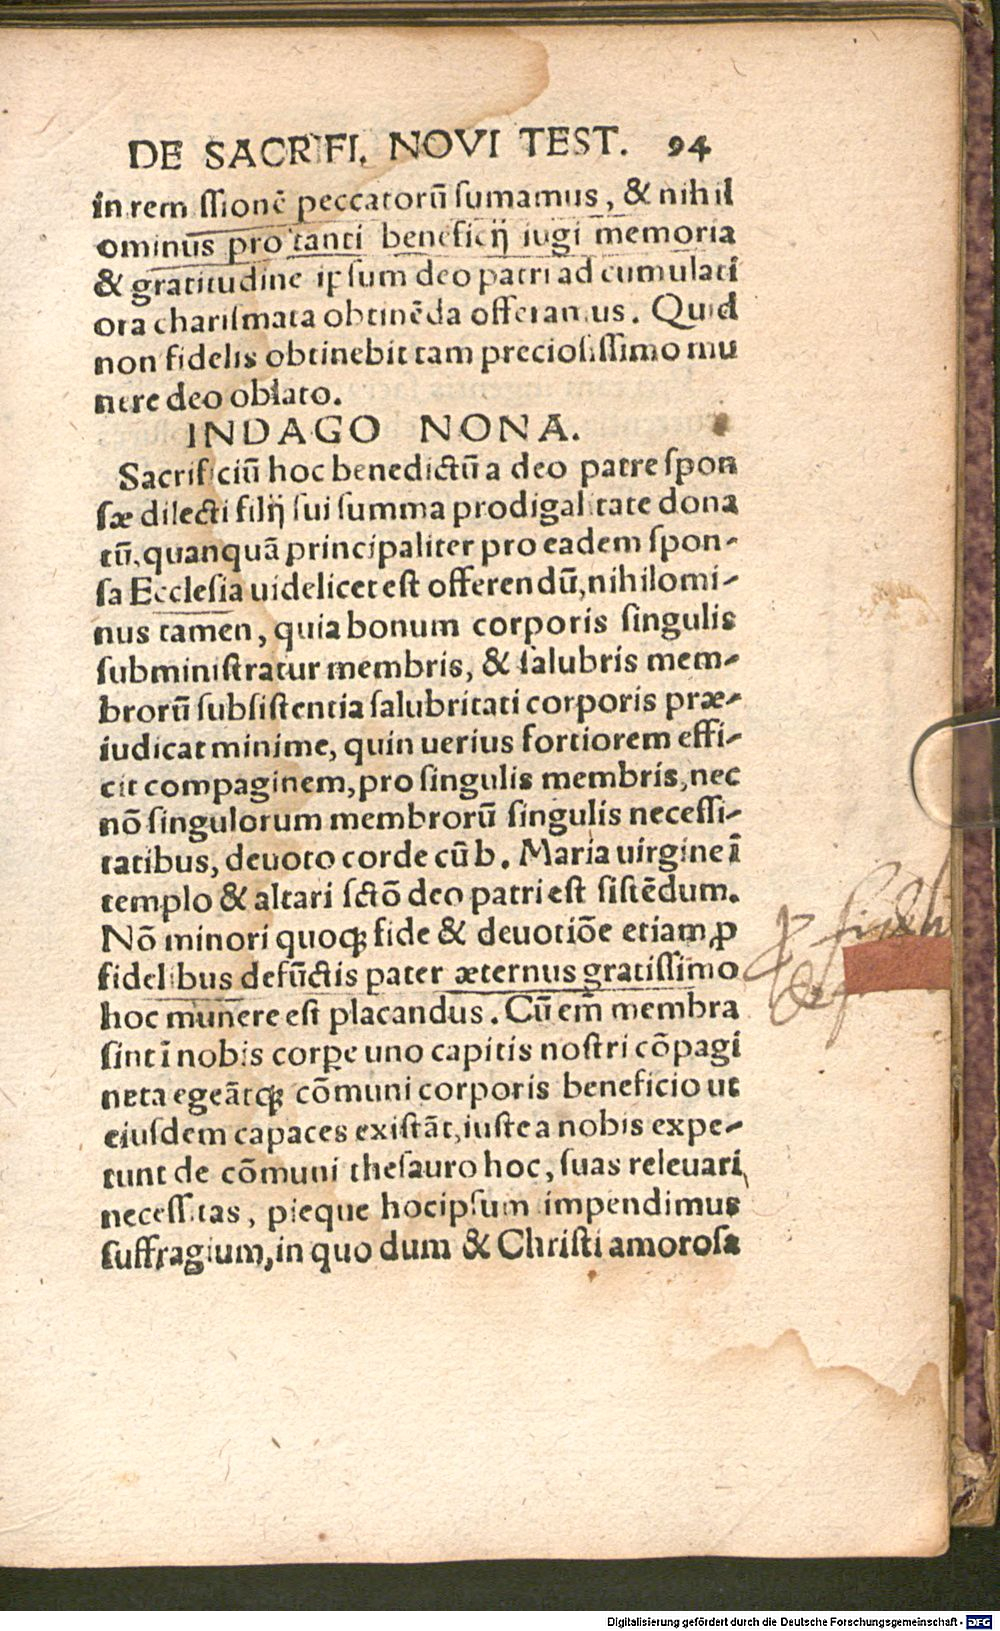 DE SACRIFI. NOVI TEST. 94
in rem ssionē peccatorū sumamus, & nihil
ominus pro tanti beneficij iugi memoria
& gratitudine ipsum deo patri ad cumulati
ora charismata obtinēda offeramus. Quid
non fidelis obtinebit tam preciosissimo mu
nere deo oblato.
INDAGO NONA.
Sacrificiū hoc benedictū a deo patre spon
sæ dilecti filij sui summa prodigalitate dona
tū, quanquā principaliter pro eadem spon-
sa Ecclesia uidelicet est offerendū, nihilomi-
nus tamen, quia bonum corporis singulis
subministratur membris, & salubris mem-
brorū subsistentia salubritati corporis præ-
iudicat minime, quin uerius fortiorem effi-
cit compaginem, pro singulis membris, nec
nō singulorum membrorū singulis necessi-
tatibus, deuoto corde cū b. Maria uirgine ī
templo & altari sctō deo patri est sistēdum.
Nō minori quoqꝫ fide & deuotiōe etiam ꝓ
fidelibus defūctis pater æternus gratissimo
hoc munere est placandus. Cū em̄ membra
sint ī nobis corꝑe uno capitis nostri cōpagi
nata egeātqꝫ cōmuni corporis beneficio ut
eiusdem capaces existāt, iuste a nobis expe-
tunt de cōmuni thesauro hoc, suas releuari
necessitas, pieque hocipsum impendimus
suffragium, in quo dum & Christi amorosa
ꝓ fideli
Digitalisierung gefördert durch die Deutsche Forschungsgemeinschaft - DFG